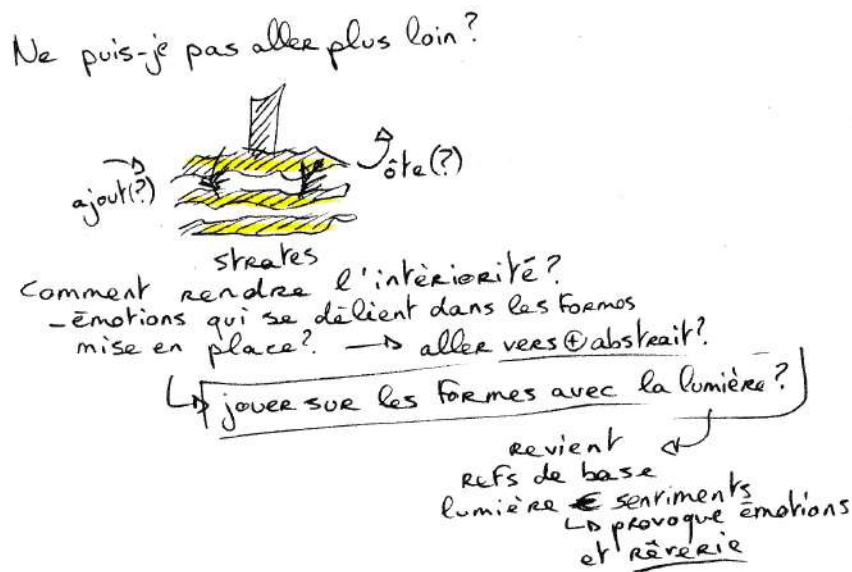 Ne puis-je pas aller plus loin?
ajout(?)
ôte(?)
strates
Comment rendre l'intèriorité?
- émotions qui se délient dans les formes
mise en place? → aller vers ⊕ abstrait?
↳ jouer sur les formes avec la lumière?
revient
refs de base
lumière € sentiments
↳ provoque émotions
et rêverie